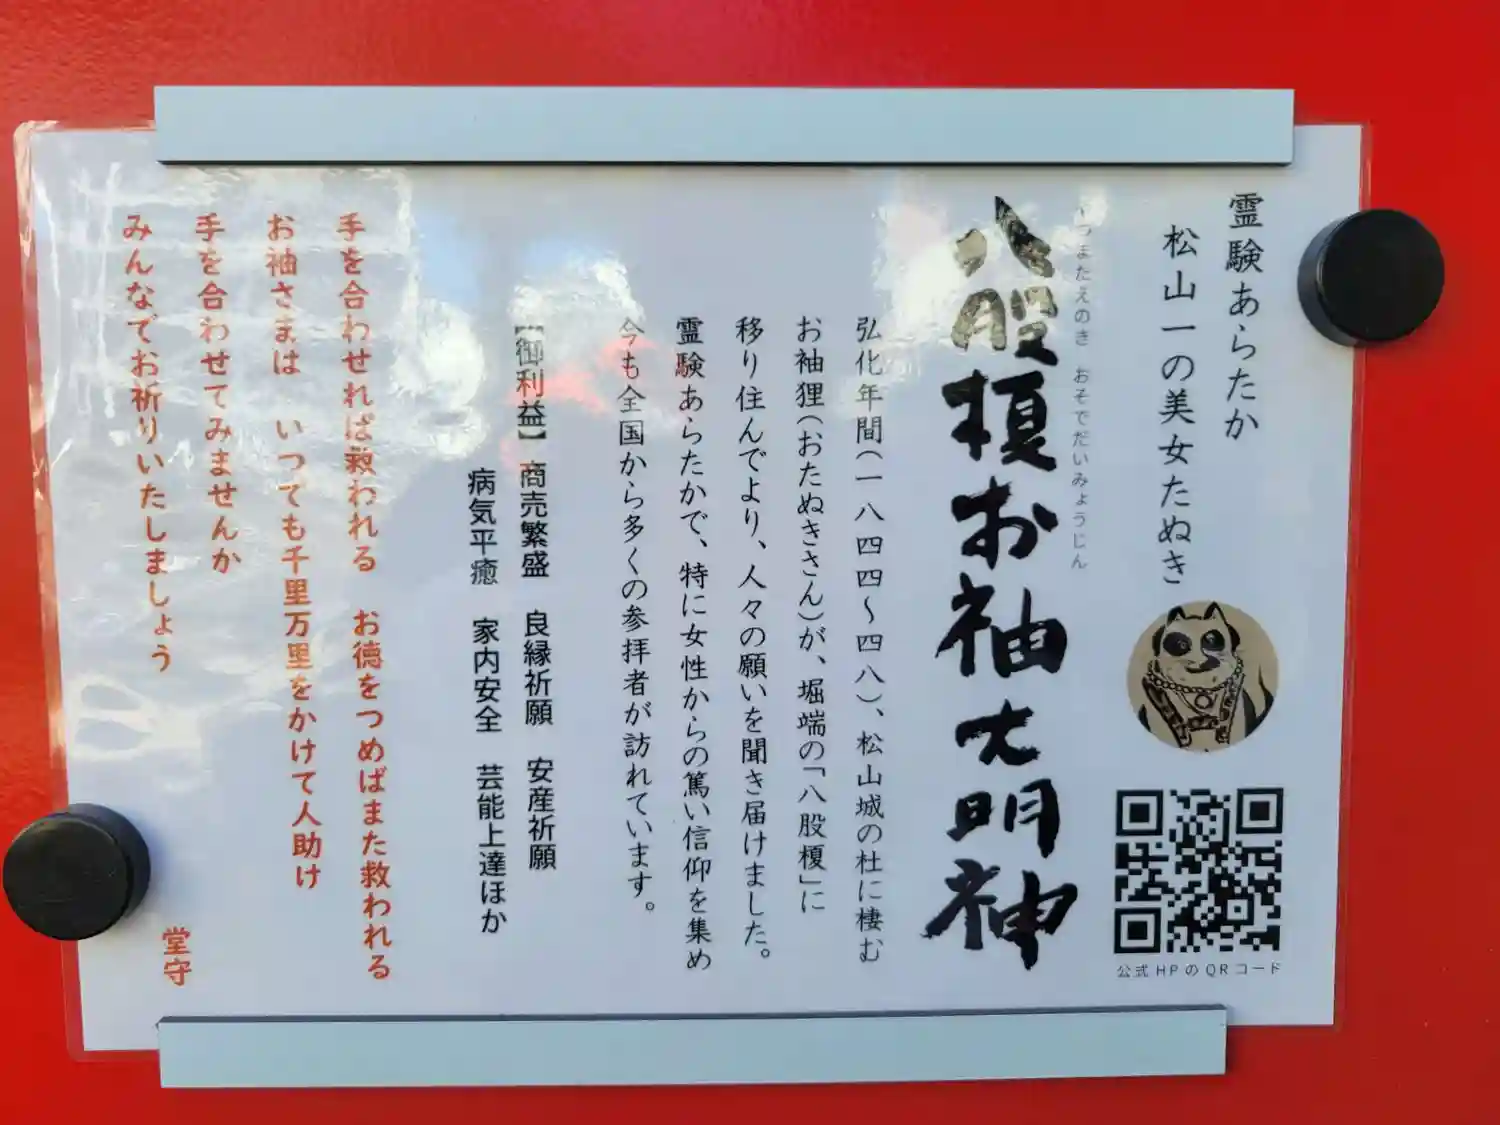 霊験あらたか
松山一の美女たぬき
公式HPのQRコード
つまたえのき おそでだいみょうじん
八股榎お袖大明神
弘化年間(一八四四〜四八)、松山城の杜に棲む
お袖狸(おたぬきさん)が、堀端の「八股榎」に
移り住んでより、人々の願いを聞き届けました。
霊験あらたかで、特に女性からの篤い信仰を集め
今も全国から多くの参拝者が訪れています。
【御利益】 商売繁盛 良縁祈願 安産祈願
病気平癒 家内安全 芸能上達ほか
手を合わせれば救われる お徳をつめばまた救われる
お袖さまは いつても千里万里をかけて人助け
手を合わせてみませんか
みんなでお祈りいたしましょう
堂守